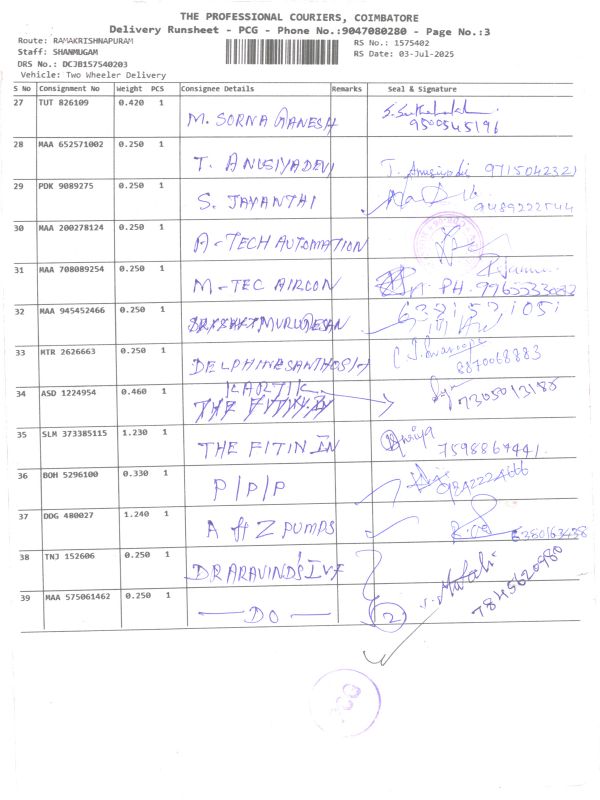 THE PROFESSIONAL COURIERS, COIMBATORE
Delivery Runsheet - PCG - Phone No.:9047080280 - Page No.:3
Route: RAMAKRISHNAPURAM
Staff: SHANMUGAM
DRS No.: DCJB157540203
Vehicle: Two Wheeler Delivery
RS No.: 1575402
RS Date: 03-Jul-2025
S No Consignment No Weight PCS Consignee Details Remarks Seal & Signature
27 TUT 826109 0.420 1 M. SORNA GANESH 9500545196
28 MAA 652571002 0.250 1 T. ANUSIYADEVI T. Anusiyadevi 9715042321
29 PDK 9089275 0.250 1 S. JAYANTHI 9489222544
30 MAA 200278124 0.250 1 A-TECH AUTOMATION
31 MAA 708089254 0.250 1 M-TEC AIRCON PH. 9965533082
32 MAA 945452466 0.250 1 MURUGESAN
33 MTR 2626663 0.250 1 DELPHINESANTHOSIA 8870068883
34 ASD 1224954 0.460 1 KARTIK 7305013186
35 SLM 373385115 1.230 1 THE FITIN IN 7598864441.
36 BOH 5296100 0.330 1 P/P/P 9842224666
37 DDG 480027 1.240 1 A ft Z PUMPS
38 TNJ 152606 0.250 1 DR ARAVIND'S IVF
39 MAA 575061462 0.250 1 DO 2 7845620980